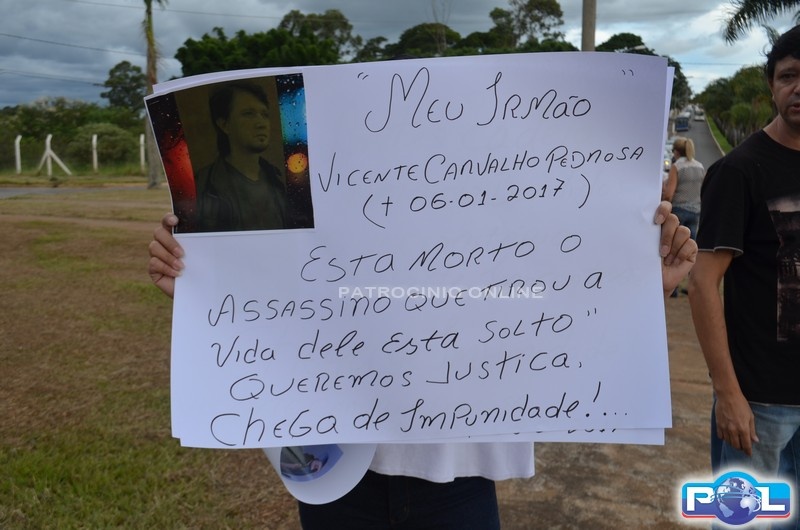 "MEU IRMÃO"
VICENTE CARVALHO PEDROSA
(† 06-01-2017)
ESTA MORTO O
ASSASSINO QUE TIROU A
VIDA DELE ESTA SOLTO"
QUEREMOS JUSTICA.
CHEGA DE IMPUNIDADE!...
PATROCINIO ONLINE
POL